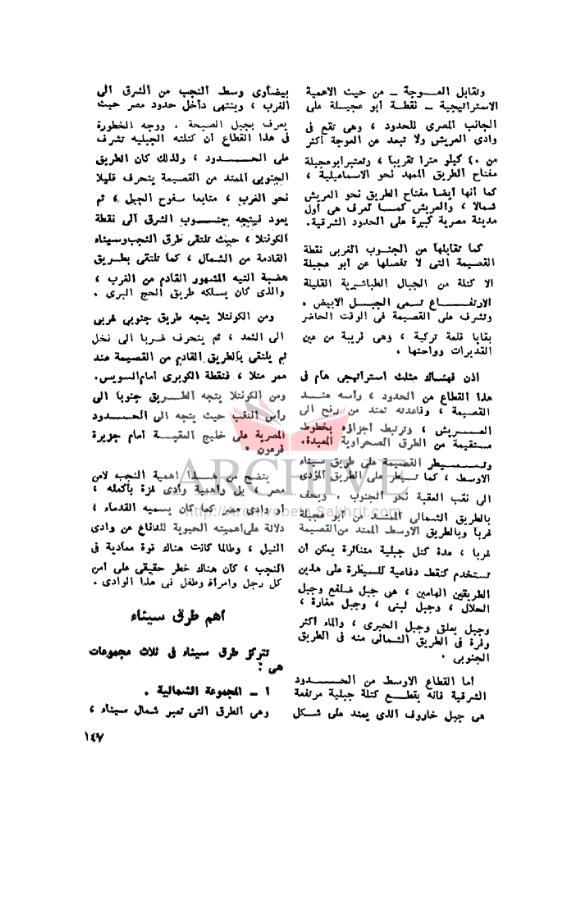 وتقابل العوجة ــ من حيث الاهمية
الاستراتيجية ــ نقطة أبو عجيلة على
الجانب المصرى للحدود ، وهى تقع فى
وادى العريش ولا تبعد عن العوجة أكثر
من ٤٠ كيلو مترا تقريبا ، وتعتبر أبوعجيلة
مفتاح الطريق الممهد نحو الاسماعيلية ،
كما أنها أيضا مفتاح الطريق نحو العريش
شمالا ، والعريش كما تعرف هى أول
مدينة مصرية كبيرة على الحدود الشرقية.
كما تقابلها من الجنوب الغربى نقطة
القصيمة التى لا تفصلها عن أبو عجيلة
الا كتلة من الجبال الطباشيرية القليلة
الارتفاع تسمى الجبل الابيض .
وتشرف على القصيمة فى الوقت الحاضر
بقايا قلعة تركية ، وهى قريبة من عين
القديرات وواحتها .
اذن فهناك مثلث استراتيجى هام فى
هذا القطاع من الحدود ، رأسه عند
القصيمة ، وقاعدته تمتد من رفح الى
العريش ، وترتبط أجزاؤه بخطوط
مستقيمة من الطرق الصحراوية المعبدة.
وتسيطر القصيمة على طريق سيناء
الاوسط ، كما تسيطر على الطريق المؤدى
الى نقب العقبة نحو الجنوب . ويحف
بالطريق الشمالى الممتد من أبو عجيلة
غربا وبالطريق الاوسط الممتد من القصيمة
غربا ، عدة كتل جبلية متناثرة يمكن أن
تستخدم كنقط دفاعية للسيطرة على هذين
الطريقين الهامين ، هى جبل ضلفع وجبل
الحلال ، وجبل لبنى ، وجبل مغارة ،
وجبل يعلق وجبل الجبرى ، والماء أكثر
وفرة فى الطريق الشمالى منه فى الطريق
الجنوبى .
أما القطاع الاوسط من الحدود
الشرقية فانه يقطع كتلة جبلية مرتفعة
هى جبل خاروف الذى يمتد على شكل
بيضاوى وسط النجب من الشرق الى
الغرب ، وينتهى داخل حدود مصر حيث
يعرف بجبل الصبحة . ووجه الخطورة
فى هذا القطاع أن كتلته الجبلية تشرف
على الحدود ، ولذلك كان الطريق
الجنوبى الممتد من القصيمة ينحرف قليلا
نحو الغرب ، متابعا سفوح الجبل ، ثم
يعود فيتجه جنوب الشرق الى نقطة
الكونتلا ، حيث تلتقى طرق النجب وسيناء
القادمة من الشمال ، كما تلتقى بطريق
هضبة التيه المشهور القادم من الغرب ،
والذى كان يسلكه طريق الحج البرى .
ومن الكونتلا يتجه طريق جنوبى غربى
الى الثمد ، ثم ينحرف غربا الى نخل
ثم يلتقى بالطريق القادم من القصيمة عند
ممر متلا ، فنقطة الكوبرى امام السويس.
ومن الكونتلا يتجه الطريق جنوبا الى
رأس النقب حيث يتجه الى الحدود
المصرية على خليج العقبة أمام جزيرة
فرعون .
يتضح من هذا أهمية النجب لامن
مصر ، بل وأهمية وادى غزة بأكمله ،
أو وادى مصر كما كان يسميه القدماء ،
دلالة على أهميته الحيوية للدفاع عن وادى
النيل ، وطالما كانت هناك قوة معادية فى
النجب ، كان هناك خطر حقيقى على أمن
كل رجل وامرأة وطفل فى هذا الوادى .
أهم طرق سيناء
تتركز طرق سيناء فى ثلاث مجموعات
هى :
١ ــ المجموعة الشمالية .
وهى الطرق التى تعبر شمال سيناء ،
١٤٧
ARCHIVE
http://Archivebeta.Sakhrit.com